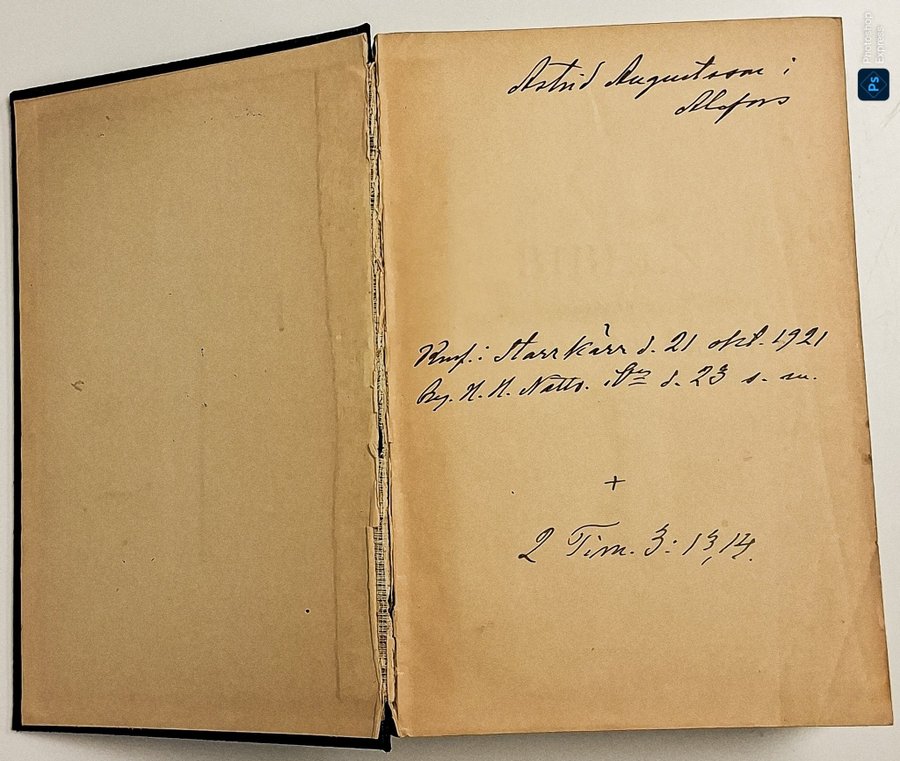 Astrid Augustsson i
Alafors
Konf. i Starrkärr d. 21 okt. 1921
Beg. H. H. Nattv. d. 23 s. m.
+
2 Tim. 3: 13, 14.
Ps
Photoshop
Express